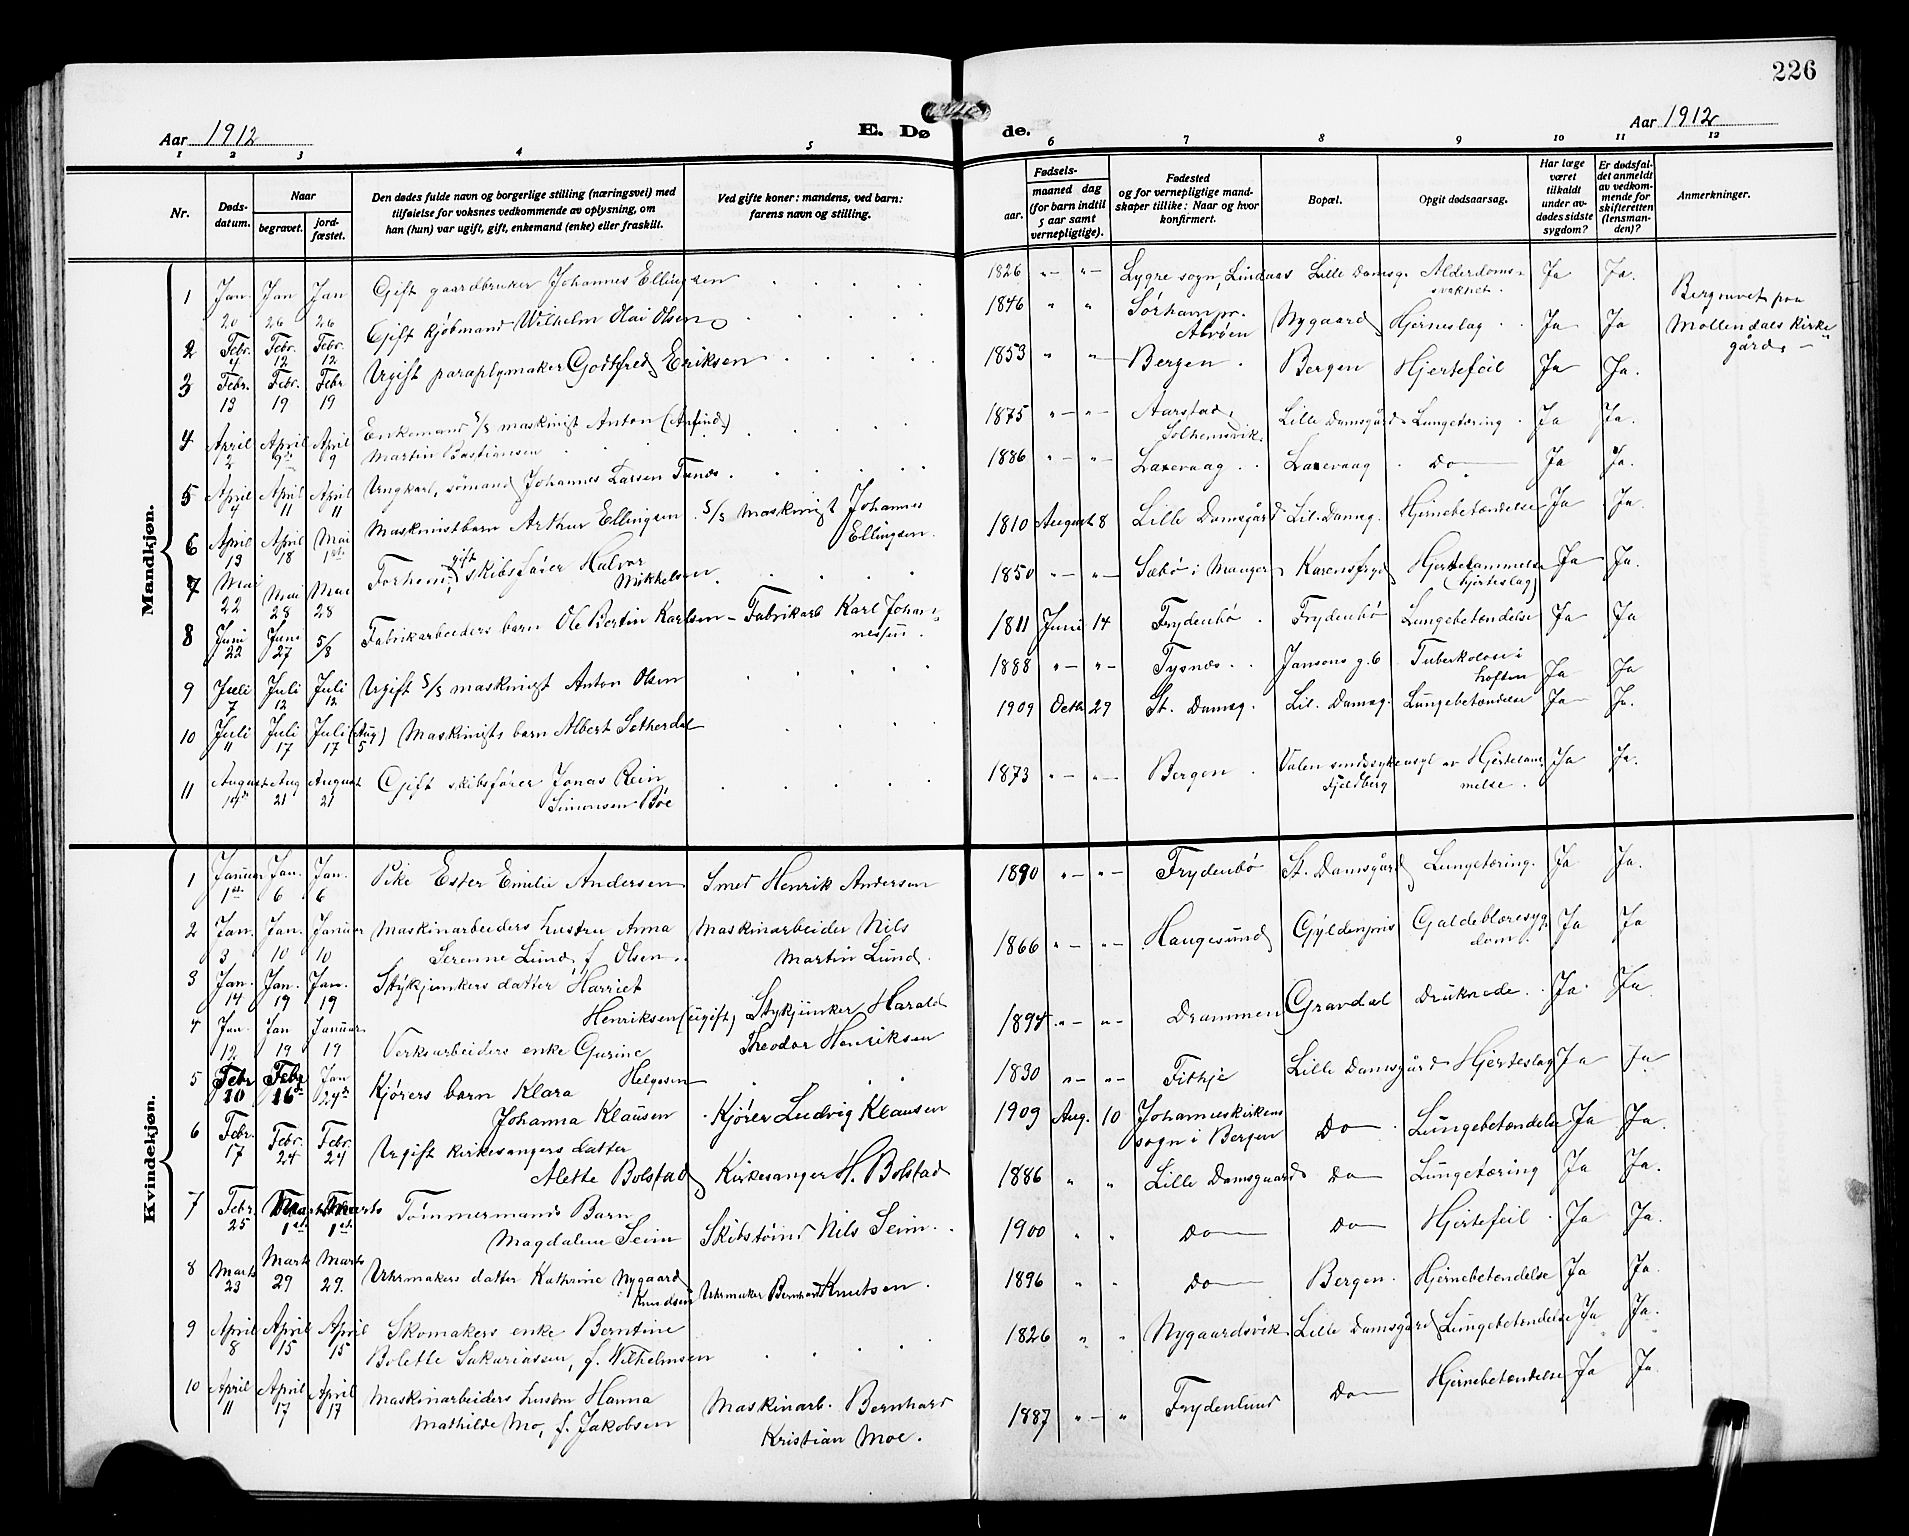 226
Aar 1912
E. Dø
de.
Aar 1912
1 2 3 4 5 6 7 8 9 10 11 12
Nr.
Døds-
datum.
Naar
begravet.
jord-
fæstet.
Den dødes fulde navn og borgerlige stilling (næringsvei) med
tilføielse for voksnes vedkommende av oplysning, om
han (hun) var ugift, gift, enkemand (enke) eller fraskilt.
Ved gifte koner: mandens, ved barn:
farens navn og stilling.
Fødsels-
aar.
maaned dag
(for barn indtil
5 aar samt
vernepligtige).
Fødested
og for vernepligtige mand-
skaper tillike: Naar og hvor
konfirmert.
Bopæl.
Opgit dødsaarsag.
Har læge
været
tilkaldt
under av-
dødes sidste
sygdom?
Er dødsfal-
det anmeldt
av vedkom-
mende for
skifteretten
(lensman-
den)?
Anmerkninger.
Mandkjøn.
1 Jan 20 Jan 26 Jan 26 Gift gaardbruker Johannes Ellingsen 1826 "— "— Lygre sogn, Lindaas Lille Damsg. Alderdoms-
svakhet. Ja Ja.
2 Febr. 4 Febr. 12 Febr. 12 Gift kjøbmand Wilhelm Olai Olsen 1846 " " Sørhampr.
Alvøen Nygaard Hjerneslag Ja Ja Begravet paa
Møllendals Kirke
gård. —
3 Febr. 13 Febr. 19 Febr. 19 Ugift paraplymaker Godtfred Eriksen 1853 " "— Bergen. Bergen Hjertefeil Ja Ja.
4 April 2 April 9de April 9 Enkemand S/S maskinist Anton (Arfind)
Martin Bastiansen 1875 "— "— Aarstad,
Solheimsvik. Lille Damsgård. Lungetæring. Ja Ja.
5 April 4 April 11 April 11 Ungkarl, sømand Johannes Larsen Tunæs. 1886 "— "— Laxevaag Laxevaag Do— Ja Ja.
6 April 13 April 18 Mai 1ste Maskinistbarn Arthur Ellingsen S/S Maskinist Johannes
Ellingsen. 1810 August 8 Lille Damsgård Lil. Damsg. Hjernebetændelse Ja Ja.
7 Mai 22 Mai 28 Mai 28 Forhenv. gift skibsfører Halvor
Mikkelsen 1850 "— "— Sæbø i Manger Karensfryd Hjertelammelse
(hjerteslag) Ja— Ja.
8 Juni 22 Juni 27 5/8 Fabrikarbeiders barn Ole Bertin Karlsen — Fabrikarb Karl Johan-
nessen. 1811 Juni 14 Frydenbø Frydenbø Lungebetændelse Ja Ja
9 Juli 7 Juli 12 Juli 12 Ugift S/S maskinist Anton Olsen 1888 "— "— Tysnæs. Jansons g. 6 Tuberkolose i
hoften Ja Ja
10 Juli 11 Juli 17 Juli 17 (Aug 5) Maskinists barn Albert Sætherdal 1909 Octb. 29 St. Damsg. Lil. Damsg. Lungebetændelse Ja— Ja.
11 August 14de Aug 21 August 21 Gift skibsfører Jonas Rein
Simonsen Bøe 1873 "— "— Bergen. Valen sindssykeasyl
Fjeldberg av Hjertelam-
melse. Ja Ja.
Kvindekjøn.
1 Januar 1ste Jan. 6 Jan. 6 Pike Ester Emilie Andersen Smed Henrik Andersen 1890 "— "— Frydenbø St. Damsgård Lungetæring. Ja Ja.
2 Jan. 3 Jan. 10 Januar 10 Maskinarbeiders hustru Anna
Serenne Lund, f. Olsen.. Maskinarbeider Nils
Martin Lund. 1866 "— "— Haugesund Gyldenpris Galdeblæresyg-
dom. Ja Ja
3 Jan. 14 Jan. 19 Jan. 19 Stykjunkers datter Harriet
Henriksen (ugift) Stykjunker Harald
Theodor Henriksen 1894 "— "— Drammen Gravdal Druknede. Ja. Ja
4 Jan. 12 Jan 19 Januar 19 Verksarbeiders enke Gurine
Helgesen 1830 "— "— Fithje Lille Damsgård Hjerteslag Ja Ja
5 Febr 10 Febr 16de Jan 24de Kjørers barn Klara
Johanna Klausen Kjører Ludvig Klausen 1909 Aug. 10 Johanneskirkens
sogn i Bergen Do— Lungebetændelse Ja Ja.
6 Febr. 17 Febr. 24 Febr. 24 Ugift kirkesangers datter
Alette Bolstad Kirkesanger H. Bolstad 1886 " " Lille Damsgaard Do— Lungetæring Ja Ja.
7 Febr. 25 Marts 1ste Marts 1ste Tømmermands Barn
Magdalene Seim Skibstømr Nils Seim. 1900 " " Do— Do— Hjertefeil. Ja Ja.
8 Marts 23 Marts 29 Marts 29. Uhrmakers datter Kathrine Nygaard
Knudsen Uhrmaker Bernhard Knutsen. 1896 " " Do— Bergen. Hjernebetændelse Ja Ja.
9 April 8 April 15 April 15 Skomakers enke Berntine
Bolette Sakariassen, f. Wilhelmsen 1826 " " Nygaardsvik Lille Damsgård Lungebetændelse Ja Ja.
10 April 11 April 17 April 17 Maskinarbeiders hustru Hanna
Mathilde Mo, f. Jakobsen Maskinarb. Bernhard
Kristian Moe. 1887 "— " Frydenlund Do— Hjernebetændelse Ja Ja.